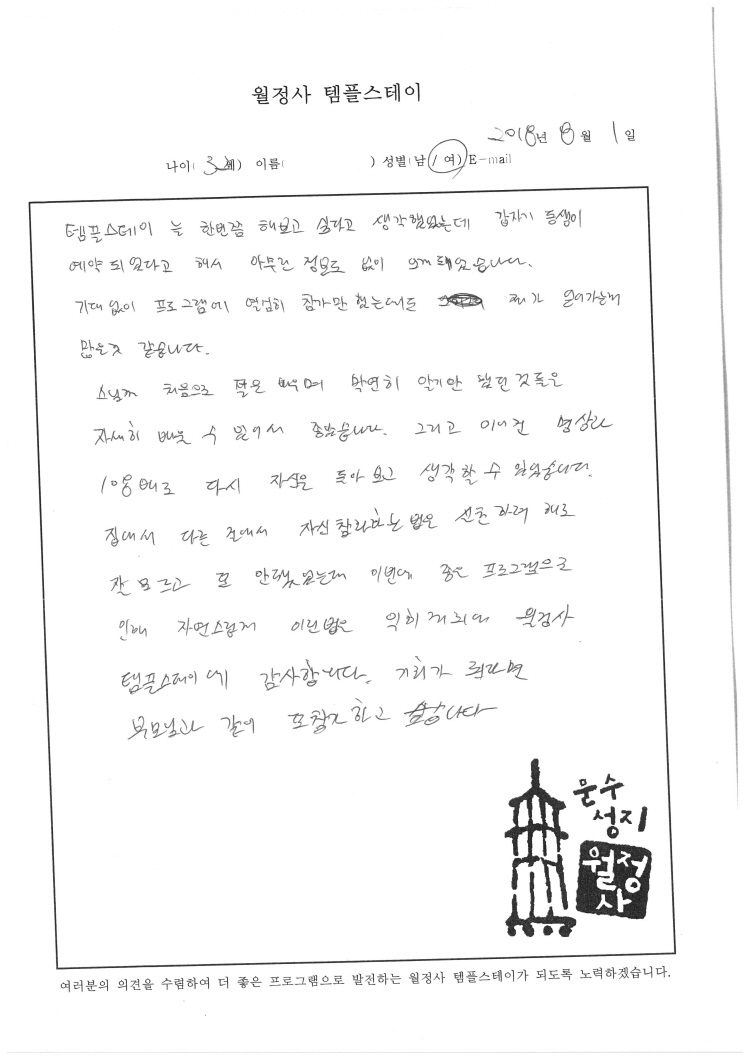 월정사 템플스테이
2018년 8월 1일
나이( ) 이름( ) 성별(남/여) E-mail
템플스테이 를 한번쯤 해보고 싶다고 생각했었는데 갑자기 동생이
예약 되었다고 해서 아무런 정보도 없이 오게 됐었습니다.
기대 없이 프로그램에 열심히 참가만 했는데도 얻어가는게
많은것 같습니다.
스님께 처음으로 절은 배우며 막연히 알기만 했던 것들을
자세히 배울 수 있어서 좋았습니다. 그리고 명상과
108배로 다시 자신을 돌아 보고 생각할 수 있었습니다.
집에서 다른 곳에서 자신 법을 해도
잘 모르고 또 안됐었는데 이번에 좋은 프로그램으로
인해 자연스럽게 이런법을 익히게되어 월정사
템플스테이에 감사합니다. 기회가 된다면
부모님과 같이 또 하고 싶습니다
문수
성지
월정
사
여러분의 의견을 수렴하여 더 좋은 프로그램으로 발전하는 월정사 템플스테이가 되도록 노력하겠습니다.